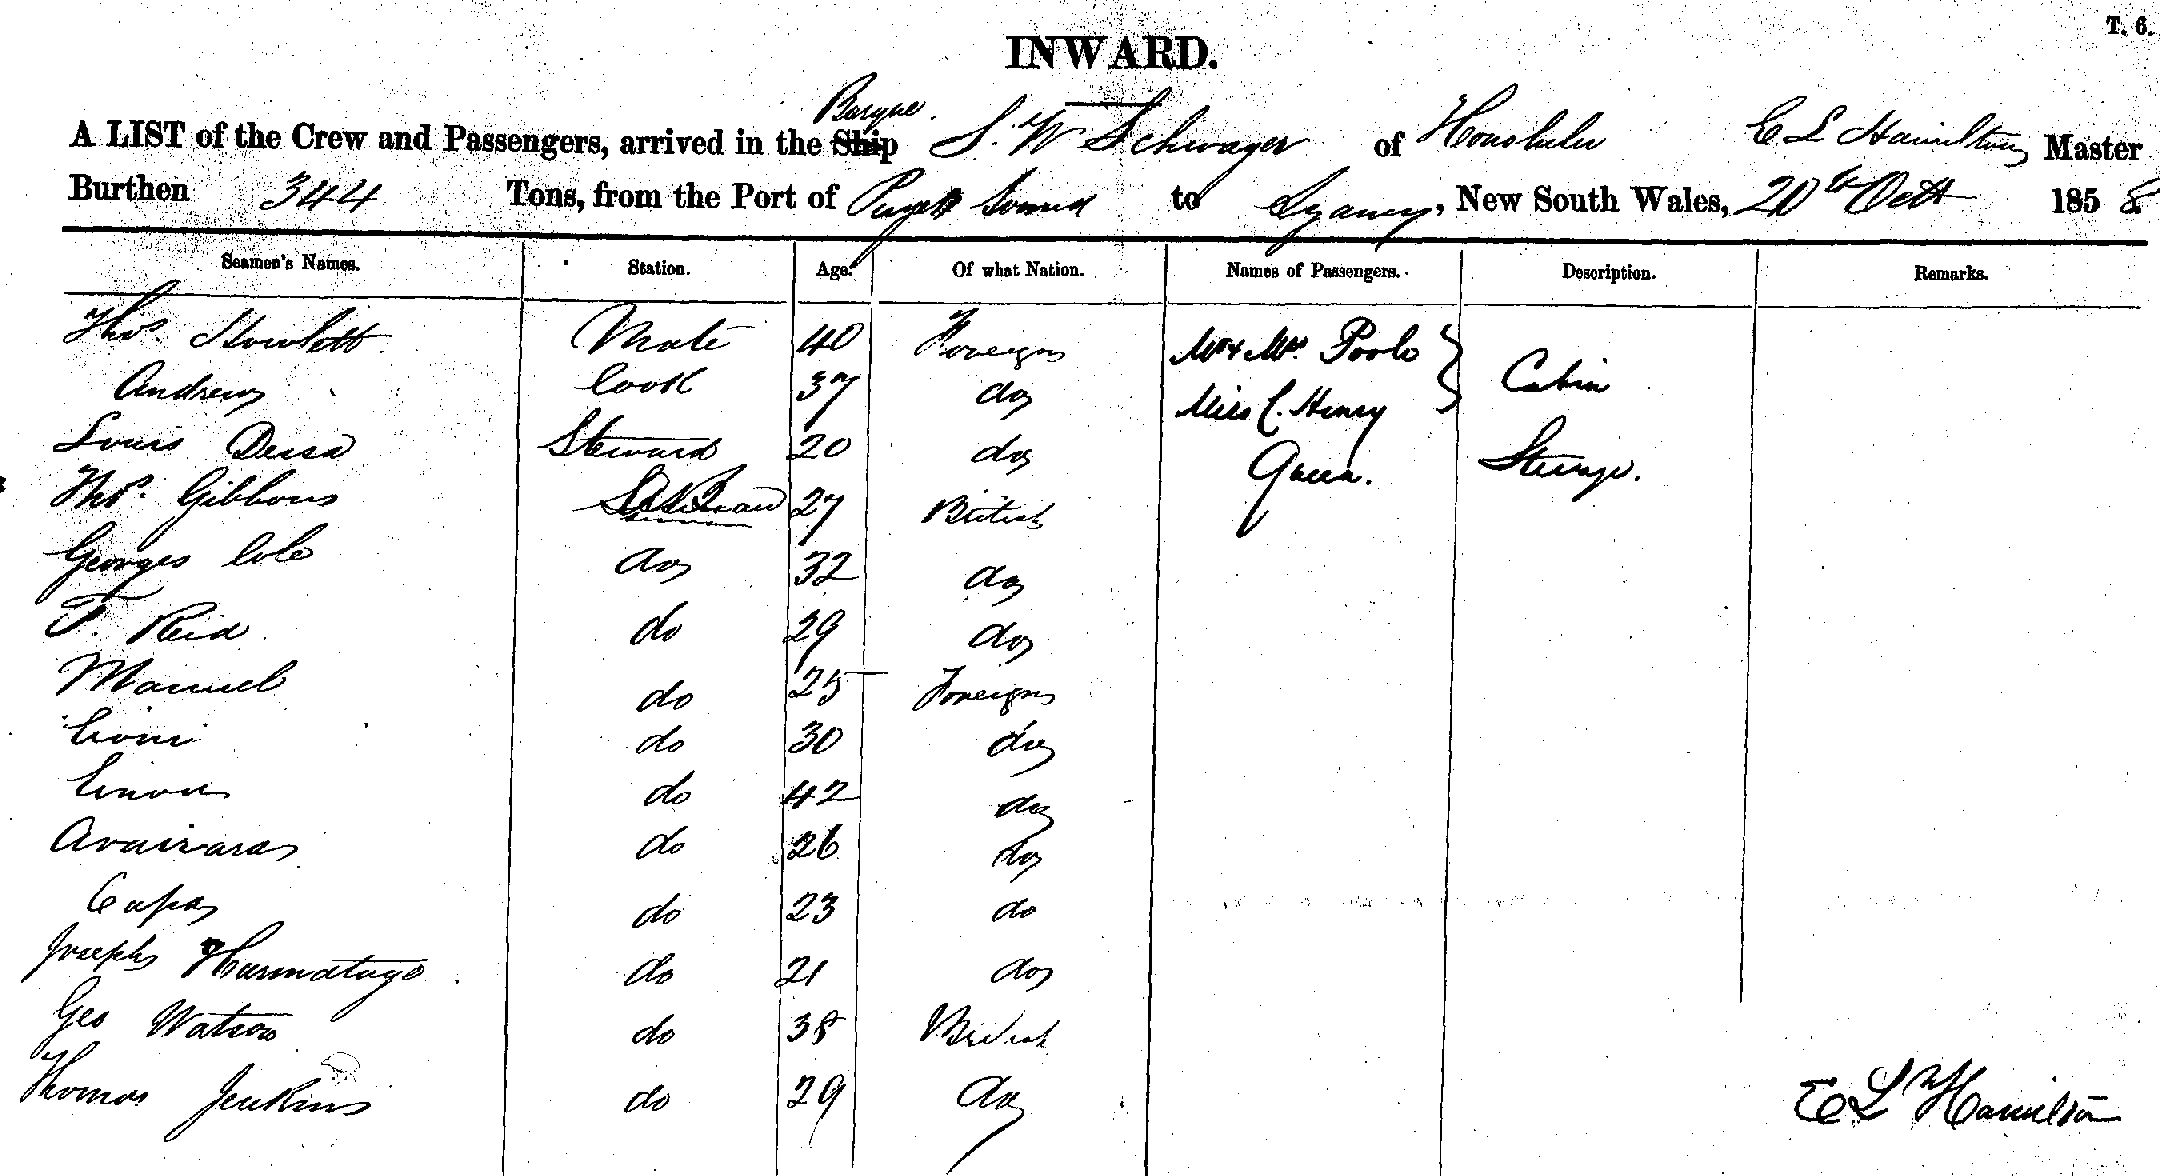 T. 6.
INWARD.
Barque.
A LIST of the Crew and Passengers, arrived in the Ship S. W Schwager of Honolulu E L Hamilton Master
Burthen 344 Tons, from the Port of Puget Sound to Sydney, New South Wales, 20th Octr 1858
Seamen's Names. Station. Age. Of what Nation. Names of Passengers. Description. Remarks.
Thos. Howlett Mate 40 Foreign Mr & Mrs. Poole
Andrew Cook 37 do Miss C. Henry Cabin
Louis Dessa Steward 20 do Queen. Steerage.
Thos. Gibbons 27 British
Georges Cole do 32 do
F. Reid do 29 do
Manuel do 25 Foreign
do 30 do
do 42 do
do 26 do
do 23 do
Joseph do 21 do
Geo Watson do 38 British
Thomas Jenkins do 29 do
E L Hamilton